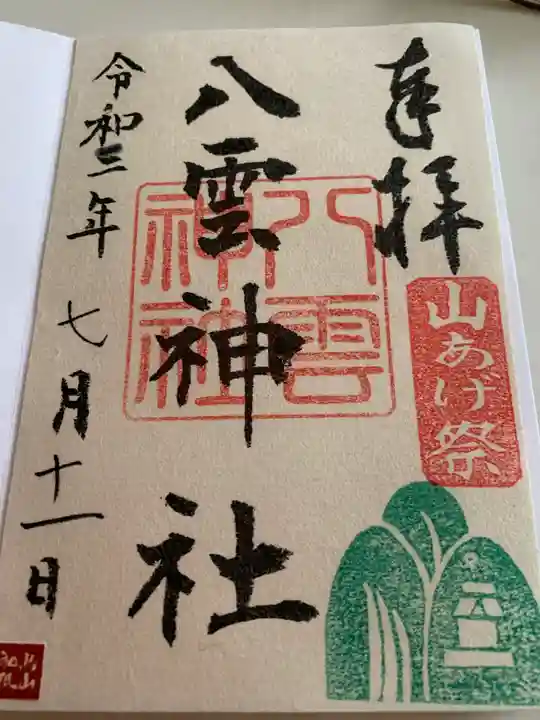 奉拝
山あげ祭
八雲神社
八雲
神社
令和三年七月十一日